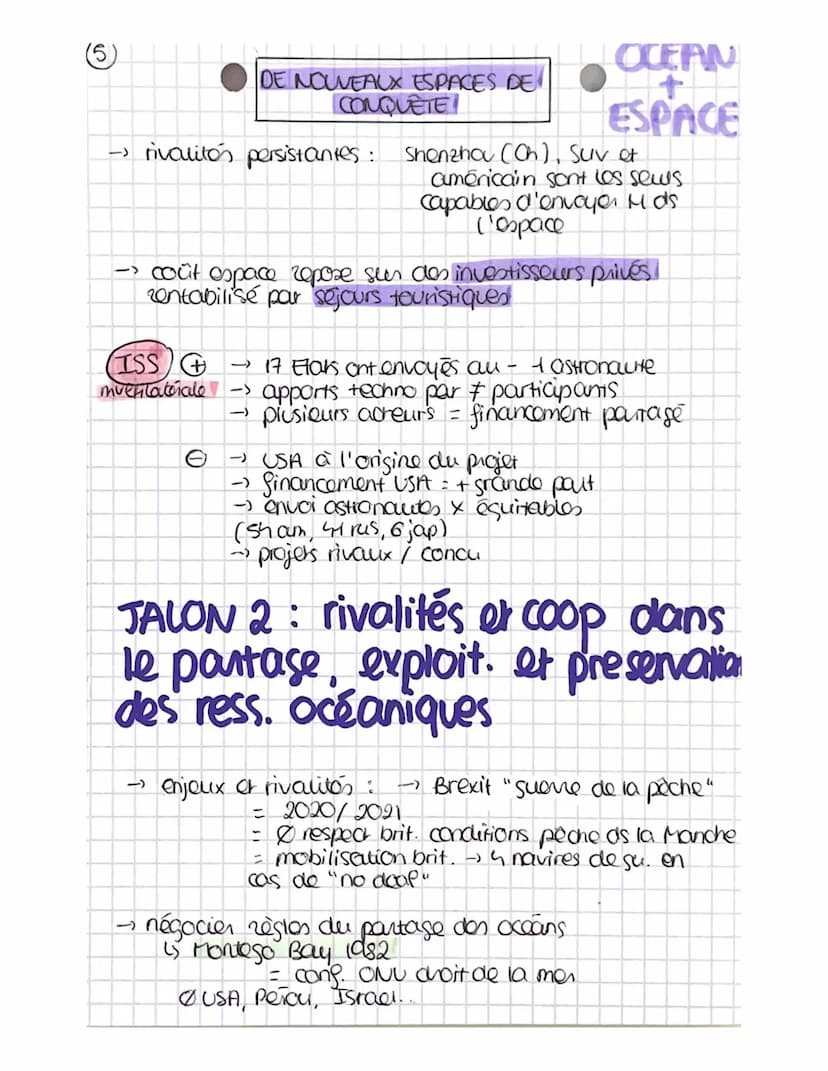 5
OCEAN
+
ESPACE
DE NOUVEAUX ESPACES DE
CONQUÊTE
→ rivalités persistantes : Shenzhou (Ch), SUV et
américain sont les seuls
capables d'envoyer H ds
l'espace
→ coût espace repose sur des investisseurs privés
rentabilisé par séjours touristiques
ISS + → 17 Etats ont envoyés au - 1 astronaute
multilatérale → apports techno par ≠ participants
→ plusieurs acteurs = financement partagé
⊖ → USA à l'origine du projet
→ financement USA = + grande part
→ envoi astronautes × équitables
(am, 41 rus, 6 jap)
→ projets rivaux / concu
JALON 2 : rivalités et coop dans
le partage, exploit. et preservation
des ress. océaniques
→ enjeux et rivalités : → Brexit "guerre de la pêche"
= 2020/2021
= Ø respect brit. conditions pêche ds la Manche
= mobilisation brit. → 4 navires de gu. en
cas de "no deal"
→ négocier règles du partage des océans
↳ Montego Bay 1982
= conf. ONU droit de la mer
Ø USA, Pérou, Israel..